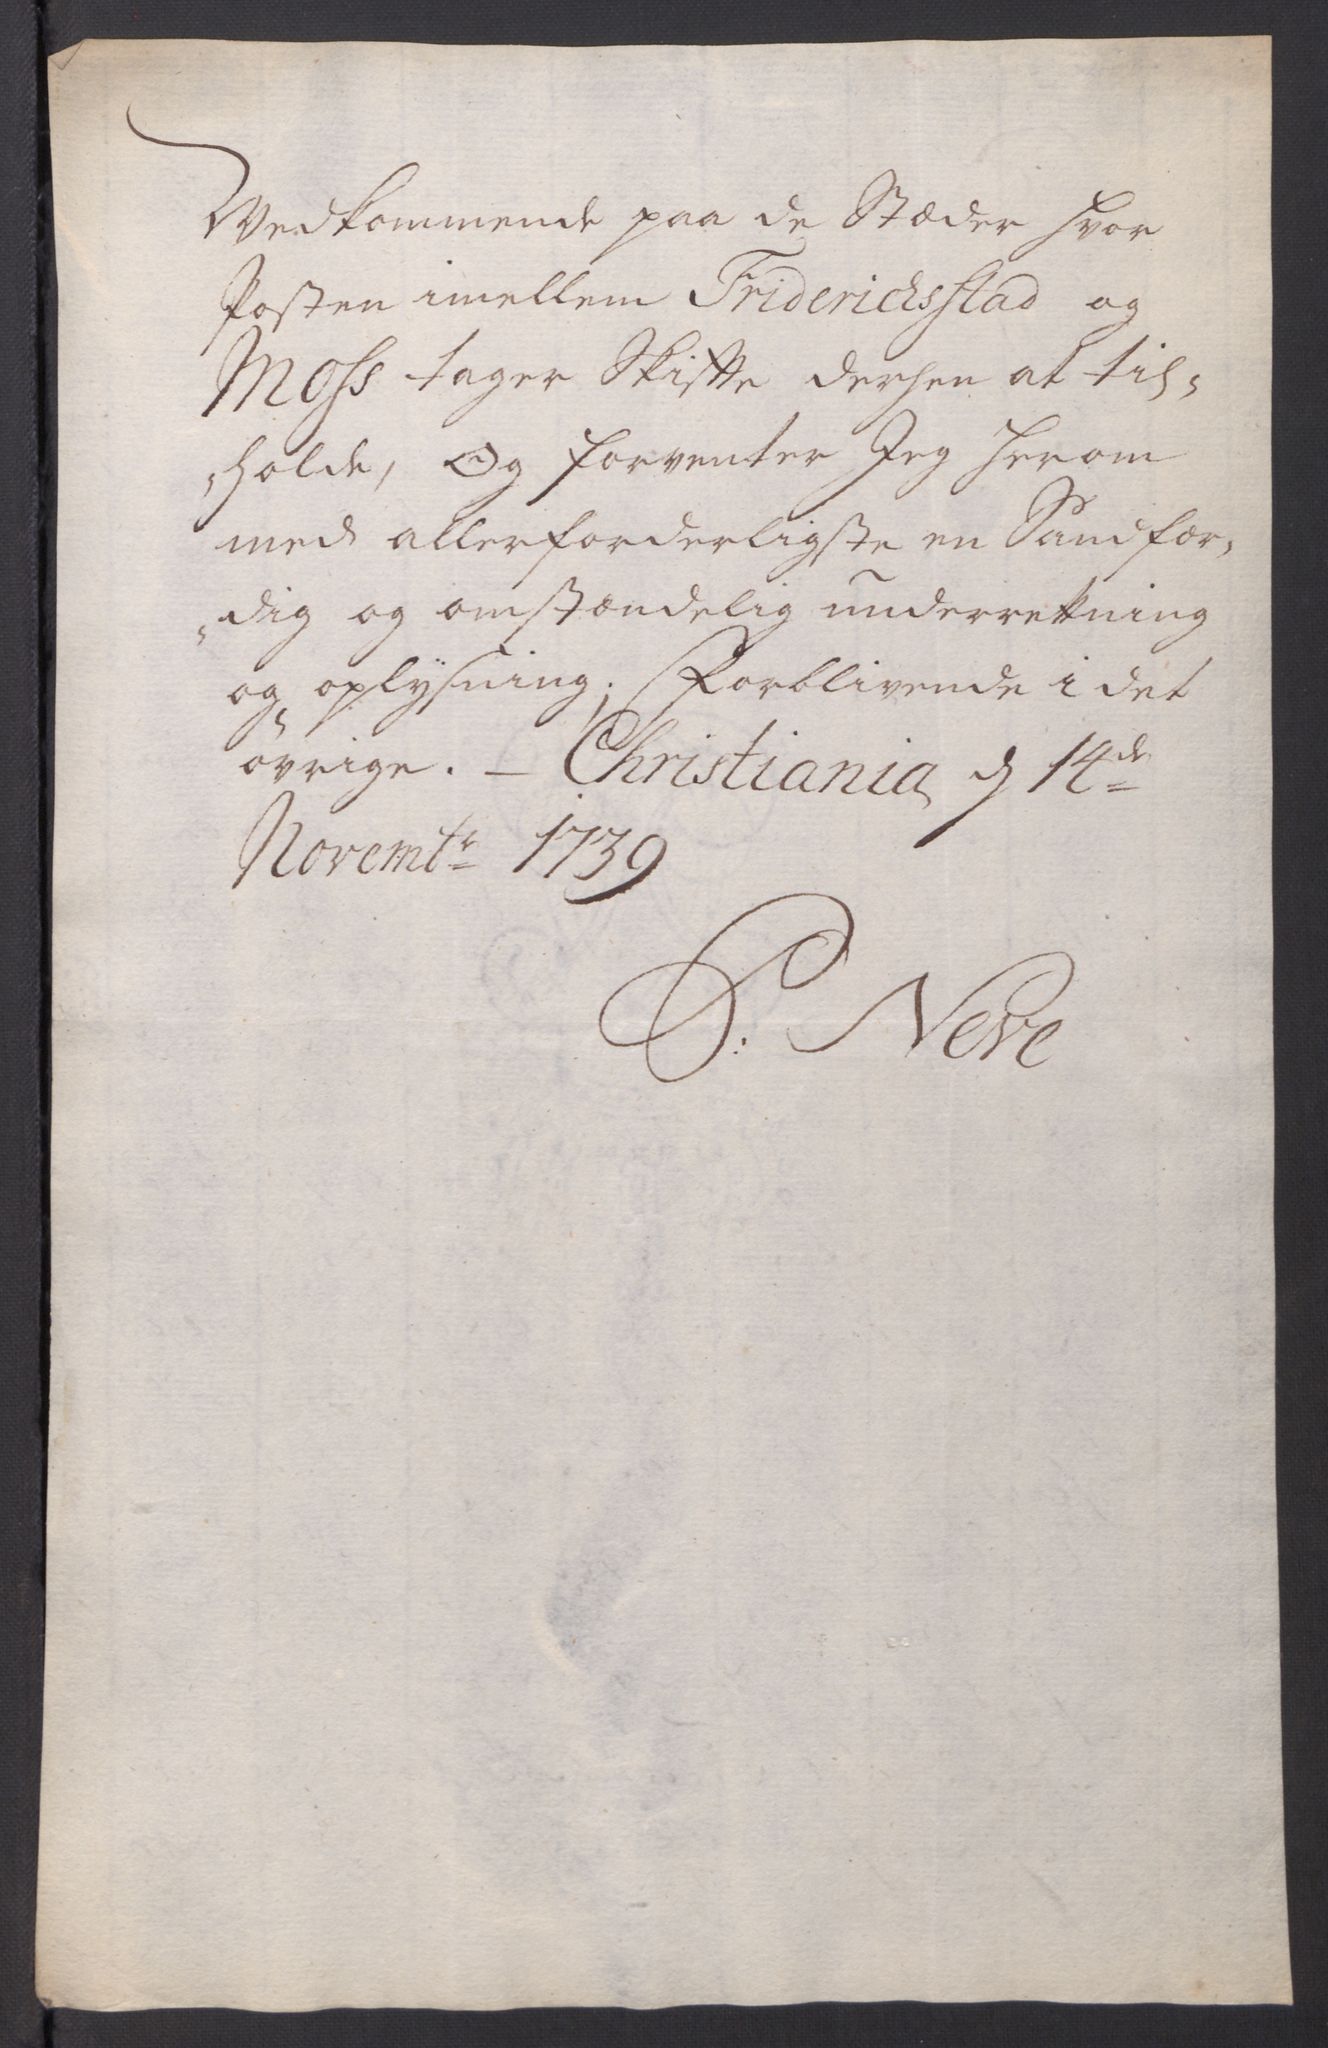 Vedkommende paa de Stæder hvor
Posten imellem Friderichsstad og
Moss tager Skifte derhen at til-
holde, Og forventer Jeg herom
med allerforderligste en Sandfær-
dig og omstændelig underretning
og oplysning; Forblivende i det
øvrige. – Christiania d 14de
Novembr 1739
P: Neve